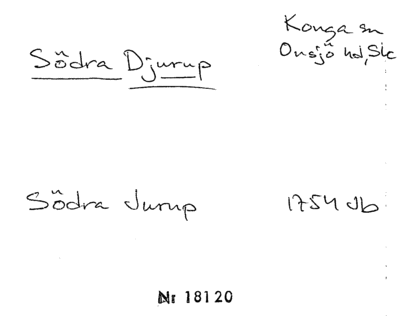 Konga sn
Södra Djurup
Onsjö hd, Sk
Södra Jurup 1754 Jb
Nr 18120